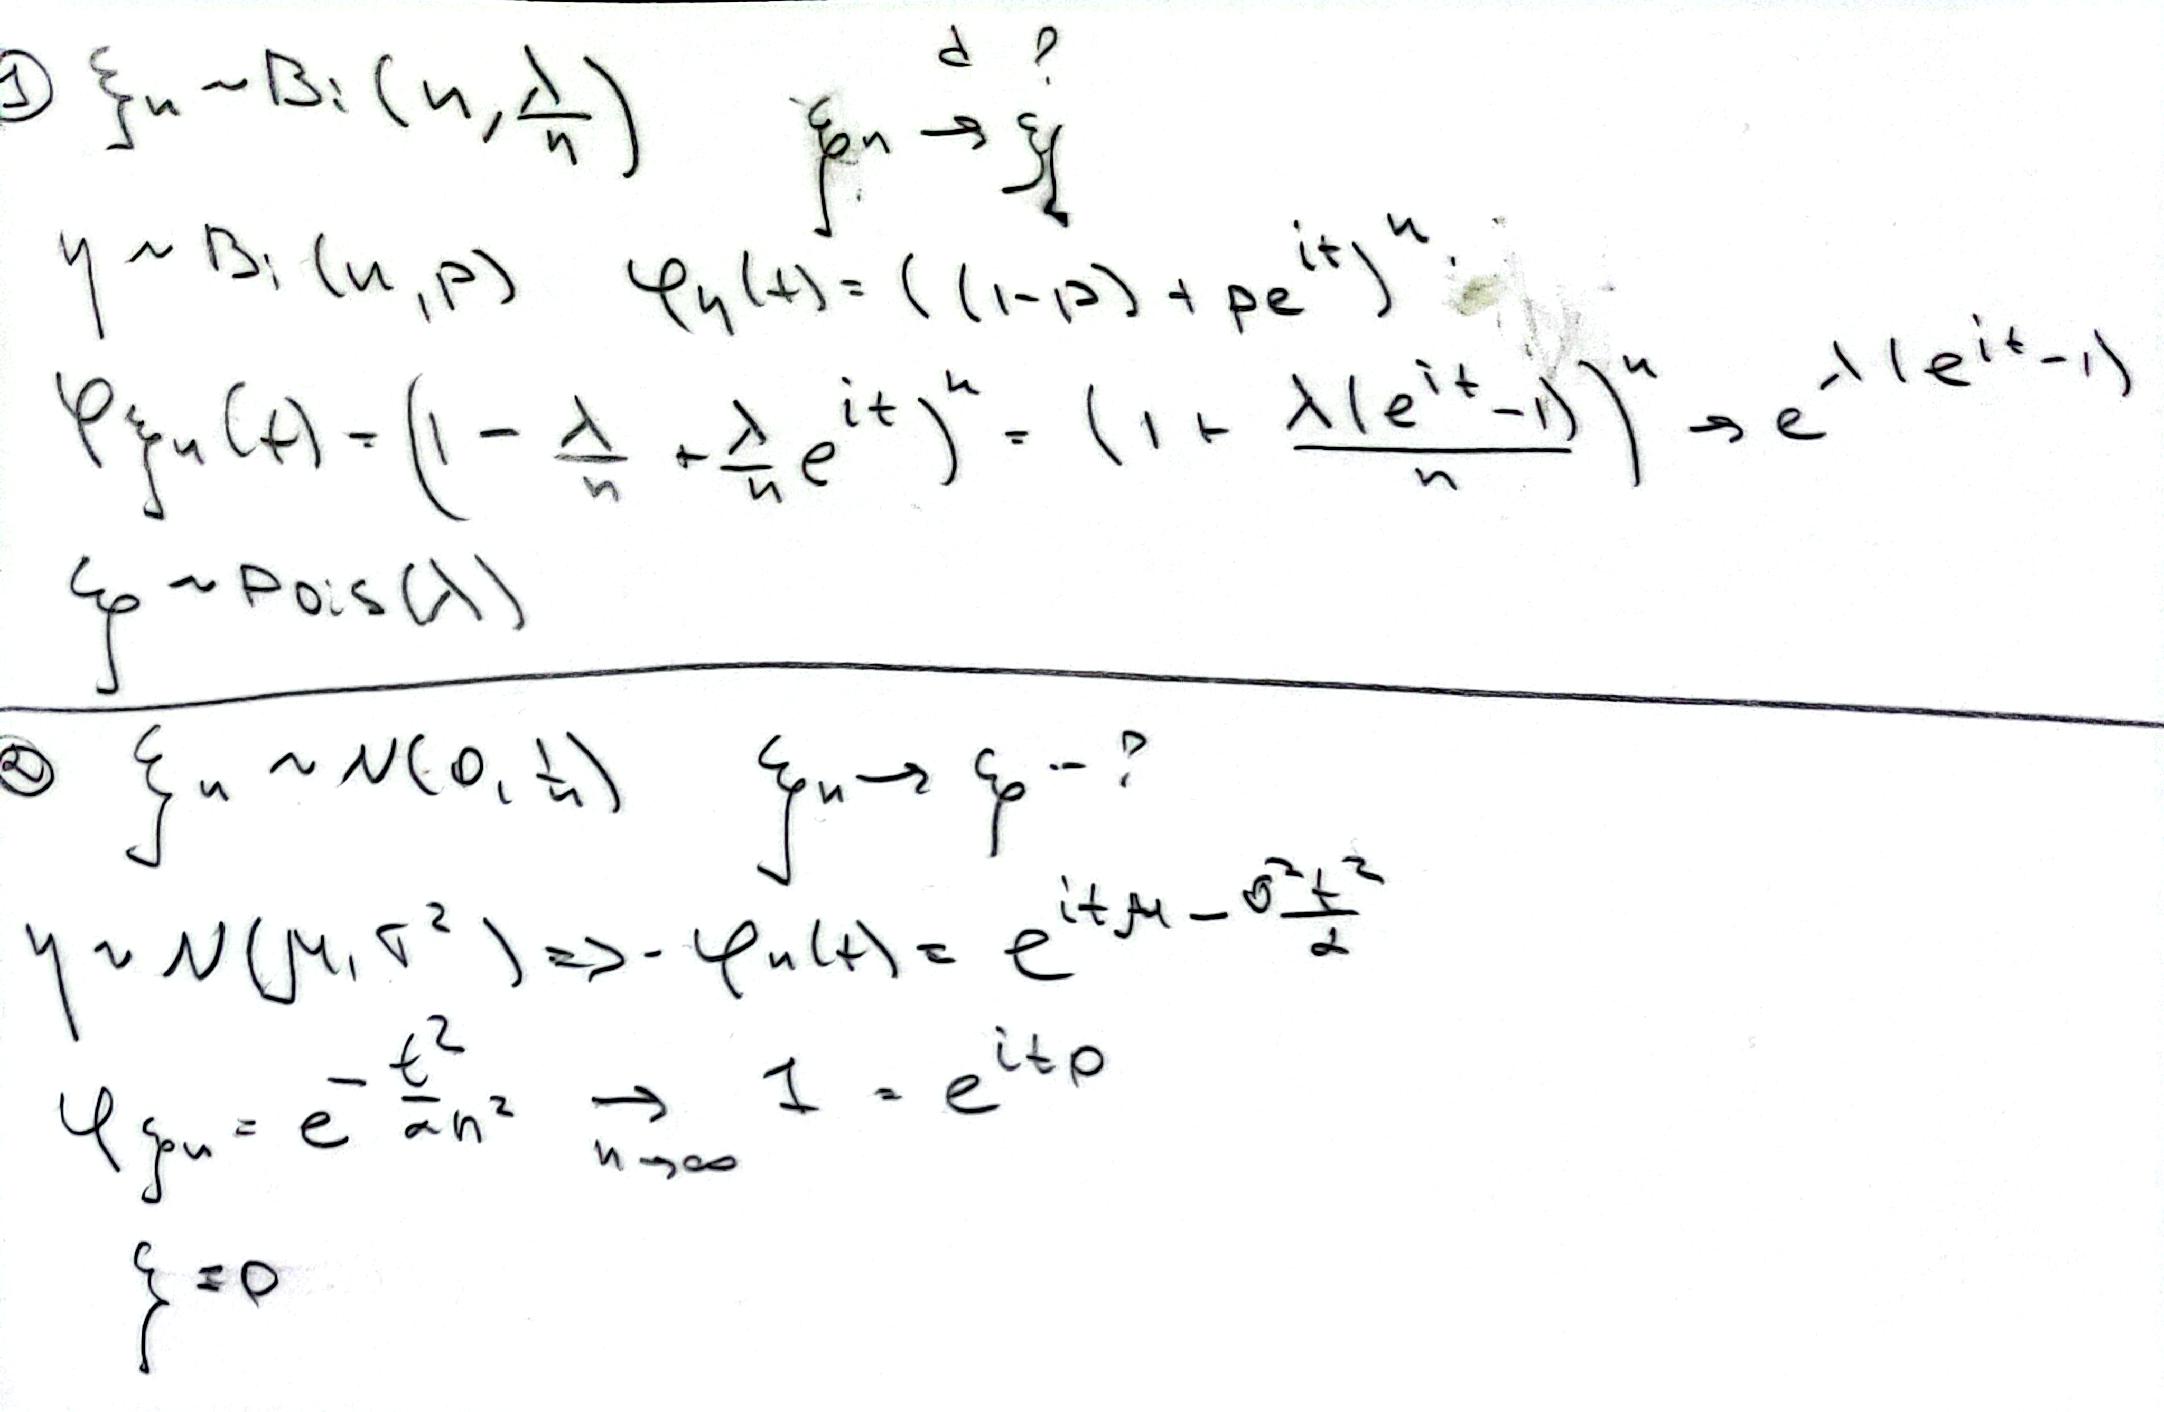 ① ξₙ ~ Bi(n, λ/n) ξₙ →ᵈ ξ ?
η ~ Bi(n, p) φ_η(t) = ((1-p) + pe^{it})ⁿ.
φ_{ξₙ}(t) = (1 - λ/n + λ/n e^{it})ⁿ = (1 + λ(e^{it}-1)/n)ⁿ → e^{λ(e^{it}-1)}
ξ ~ Pois(λ)
② ξₙ ~ N(0, 1/n) ξₙ → ξ -- ?
η ~ N(μ, σ²) => - φ_η(t) = e^{itμ - σ²t²/2}
φ_{ξₙ} = e^{-t²/2n²} →_{n→∞} 1 = e^{it0}
ξ = 0